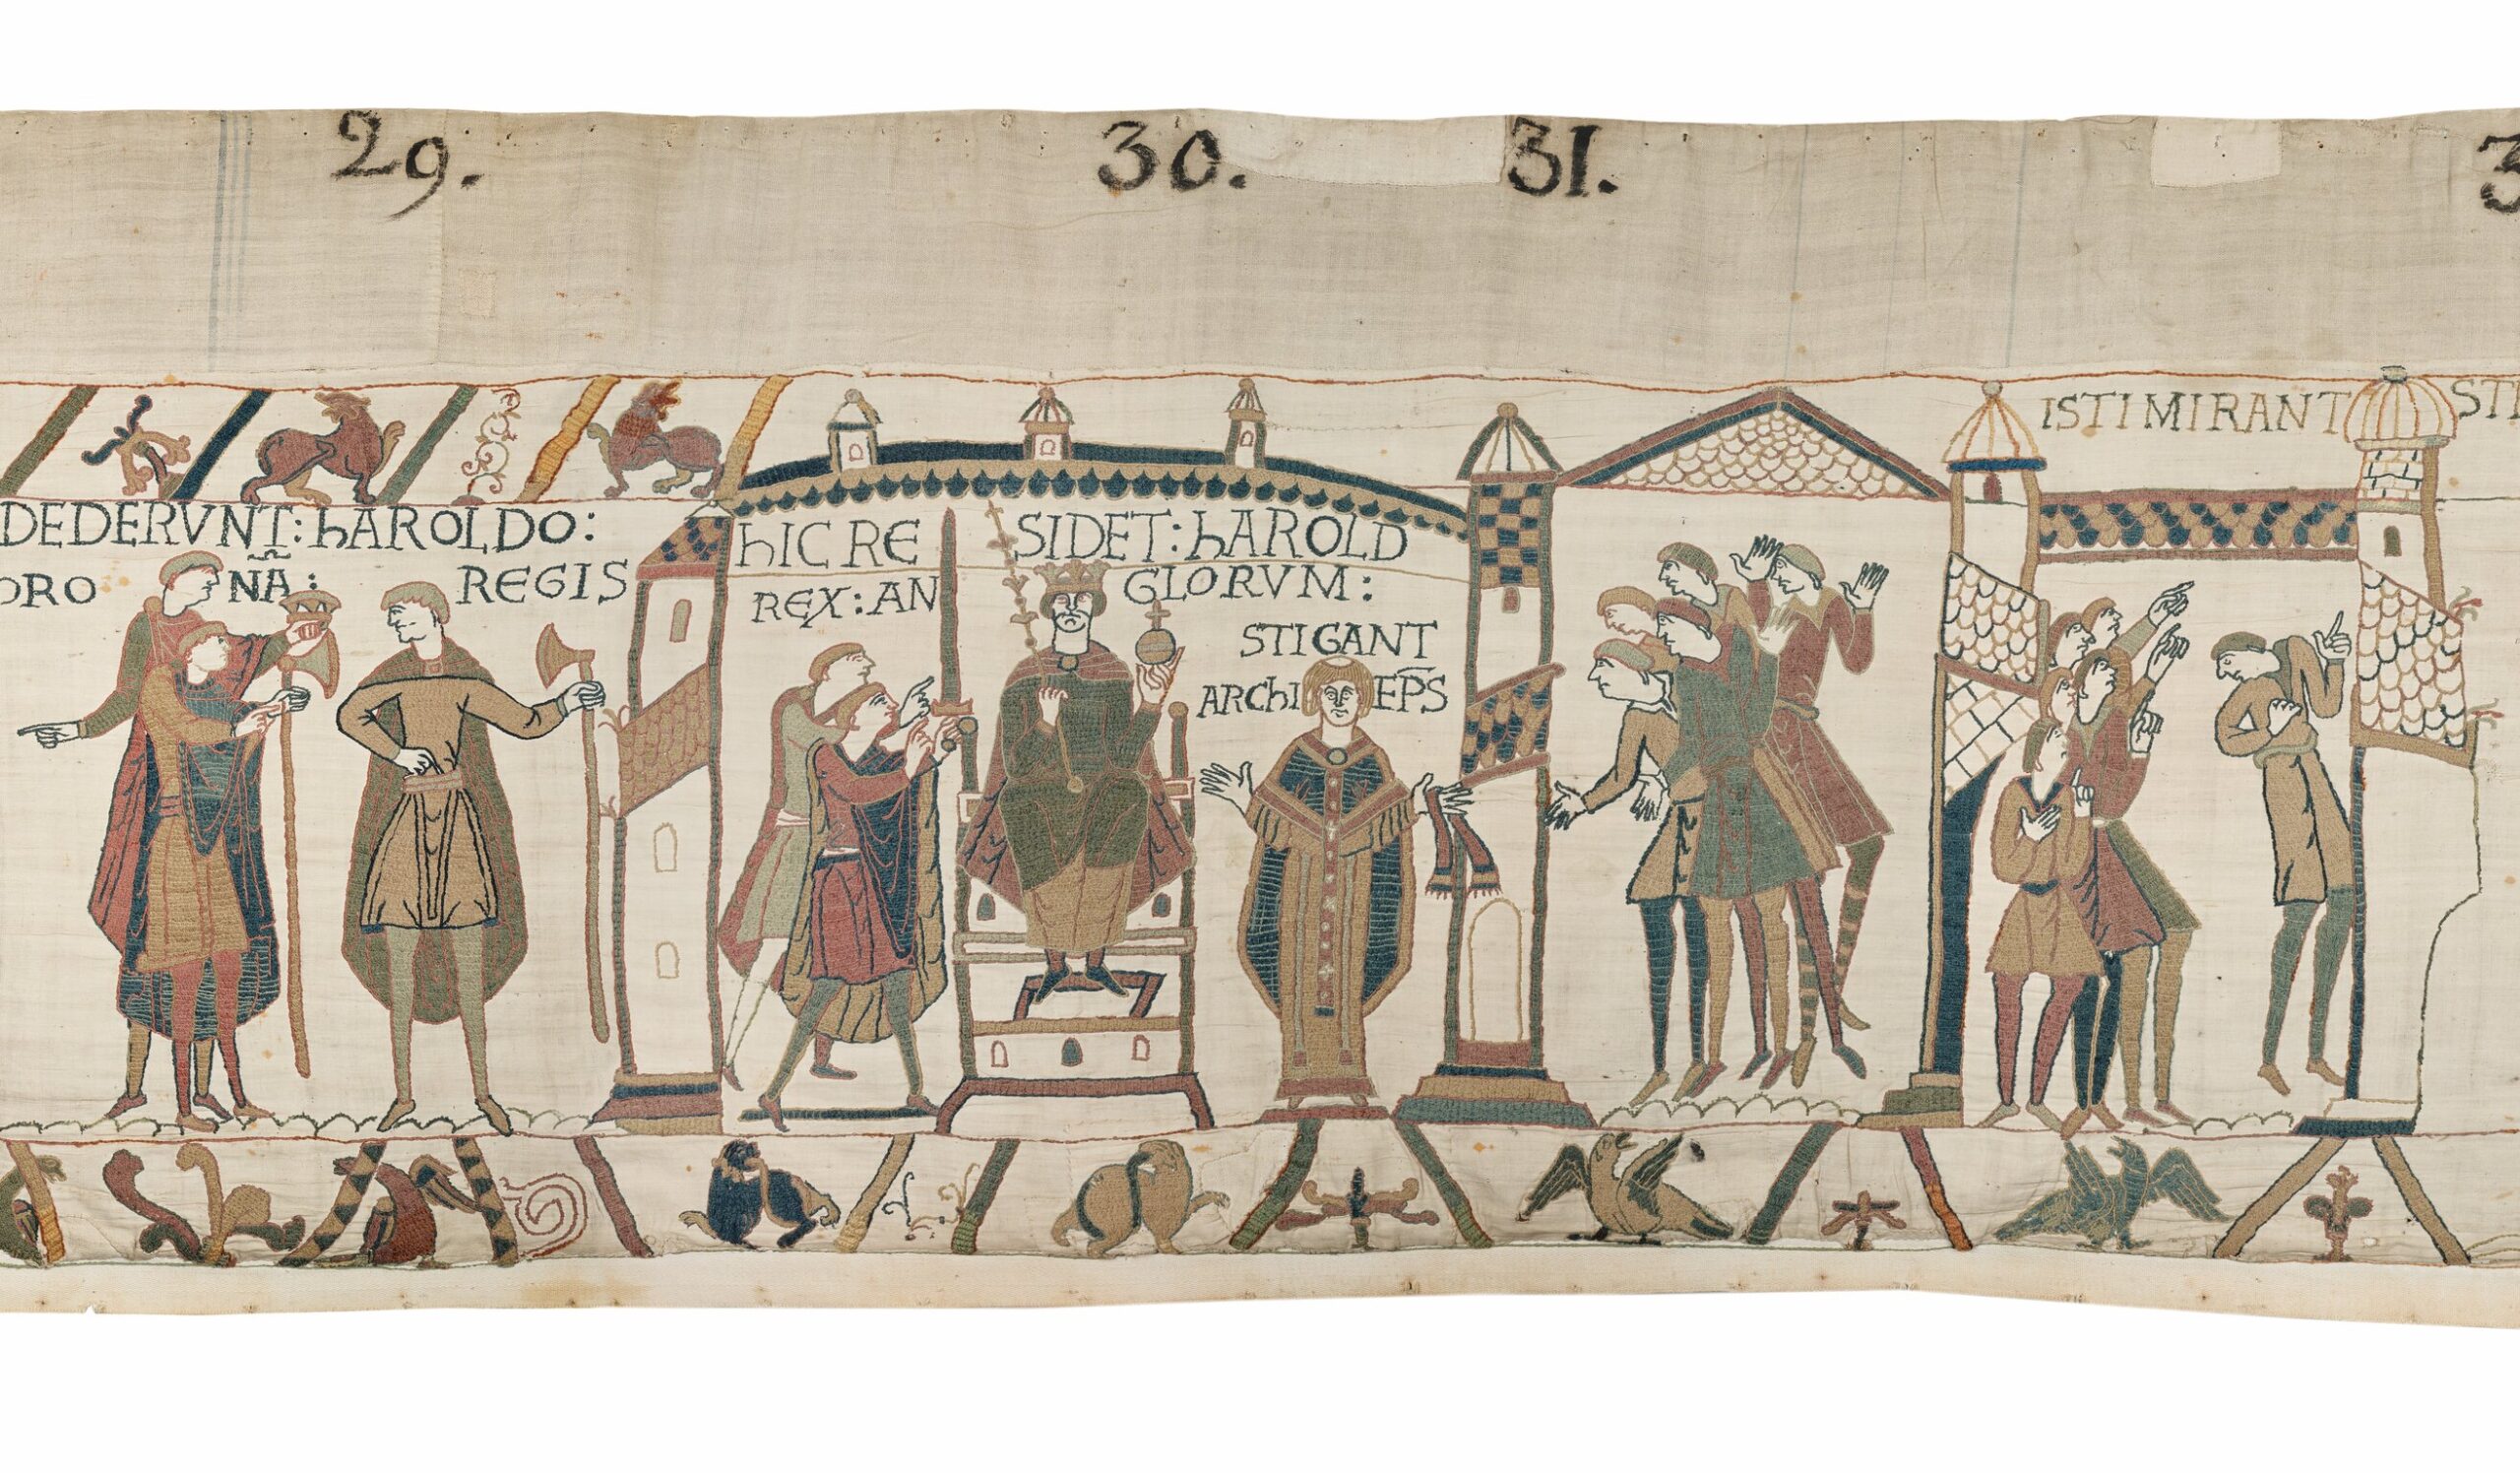 29.
30.
31.
3
DEDERVNT: hAROLDO:
ORO NA: REGIS
hIC RE SIDET: hAROLD
REX: AN GLORVM:
STIGANT
ARChI EPS
ISTI MIRANT STE